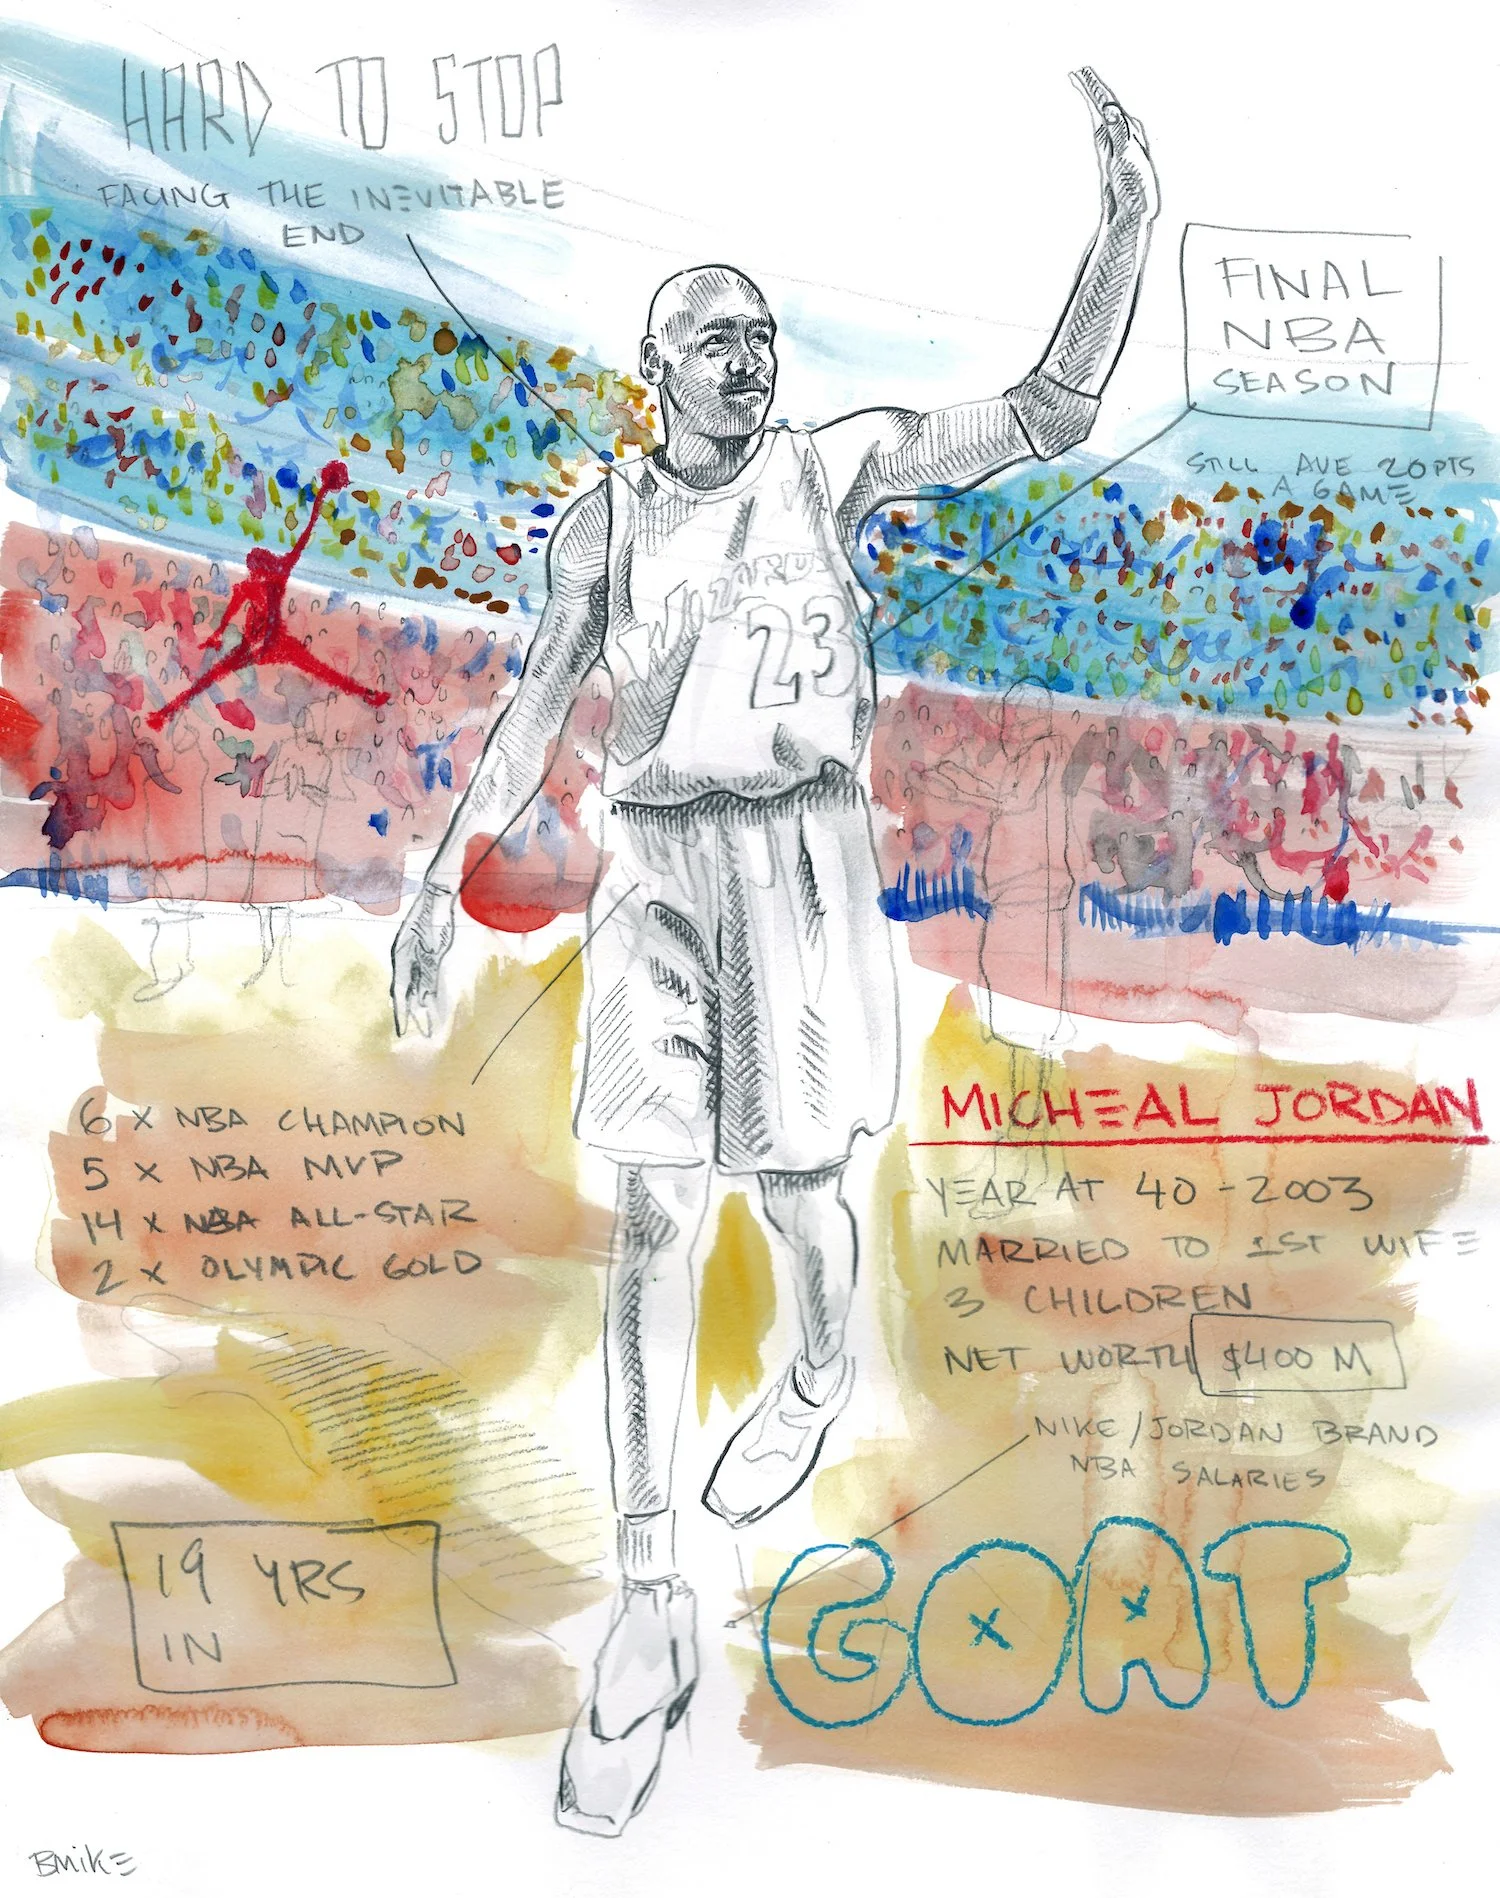 HARD TO STOP
FACING THE INEVITABLE
END
FINAL
NBA
SEASON
STILL AVE 20PTS
A GAME
ZARDS
23
6 X NBA CHAMPION
5 X NBA MVP
14 X NBA ALL-STAR
2 X OLYMPIC GOLD
MICHEAL JORDAN
YEAR AT 40 - 2003
MARRIED TO 1ST WIFE
3 CHILDREN
NET WORTH $400 M
NIKE/JORDAN BRAND
NBA SALARIES
19 YRS
IN
GOAT
BMIKE